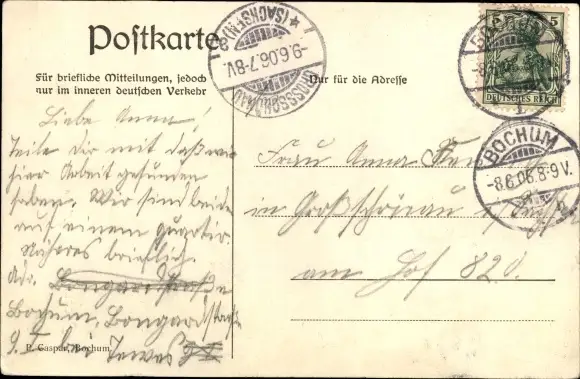 Postkarte
Für briefliche Mitteilungen, jedoch
nur im inneren deutschen Verkehr
Nur für die Adresse
(SACHSEN)
-9.6.06.7-8V.
GROSSSCHÖNAU
5 5
DEUTSCHES REICH
BOCHUM
BOCHUM
-8.6.06.8-9V.
Liebe Anna!
Teile dir mit daß wir
hier Arbeit gefunden
haben. Wir sind beide
auf einem Quartir.
Näheres brieflich
Adr. Bongardstraße
Bochum, Bongardstraße
9. I bei Tewes
Frau Anna
in Großschönau
am Hof 820.
P. Caspar, Bochum.